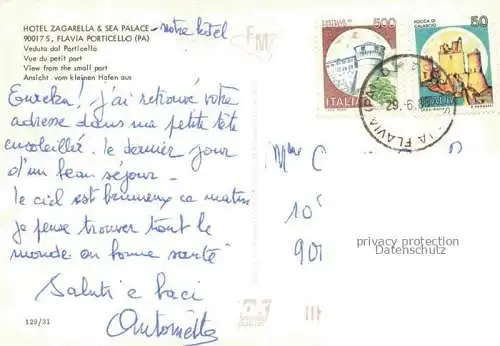 HOTEL ZAGARELLA & SEA PALACE - notre hotel
90017 S. FLAVIA PORTICELLO (PA)
Veduta dal Porticello
Vue du petit port
View from the small port
Ansicht vom kleinen Hafen aus
Eureka! j'ai retrouvé votre
adresse dans ma petite tête
ensoleillée. le dernier jour
d'un beau séjour -
le ciel est brumeux ce matin
je pense trouver tout le
monde en bonne santé
Saluti e baci
Antonietta
129/31
CASTELLO DI
500
ITALIA
ROCCA DI
CALASCIO
50
ITALIA
29.6.
FLAVIA (PA)
Mme C
10
90
privacy protection
Datenschutz